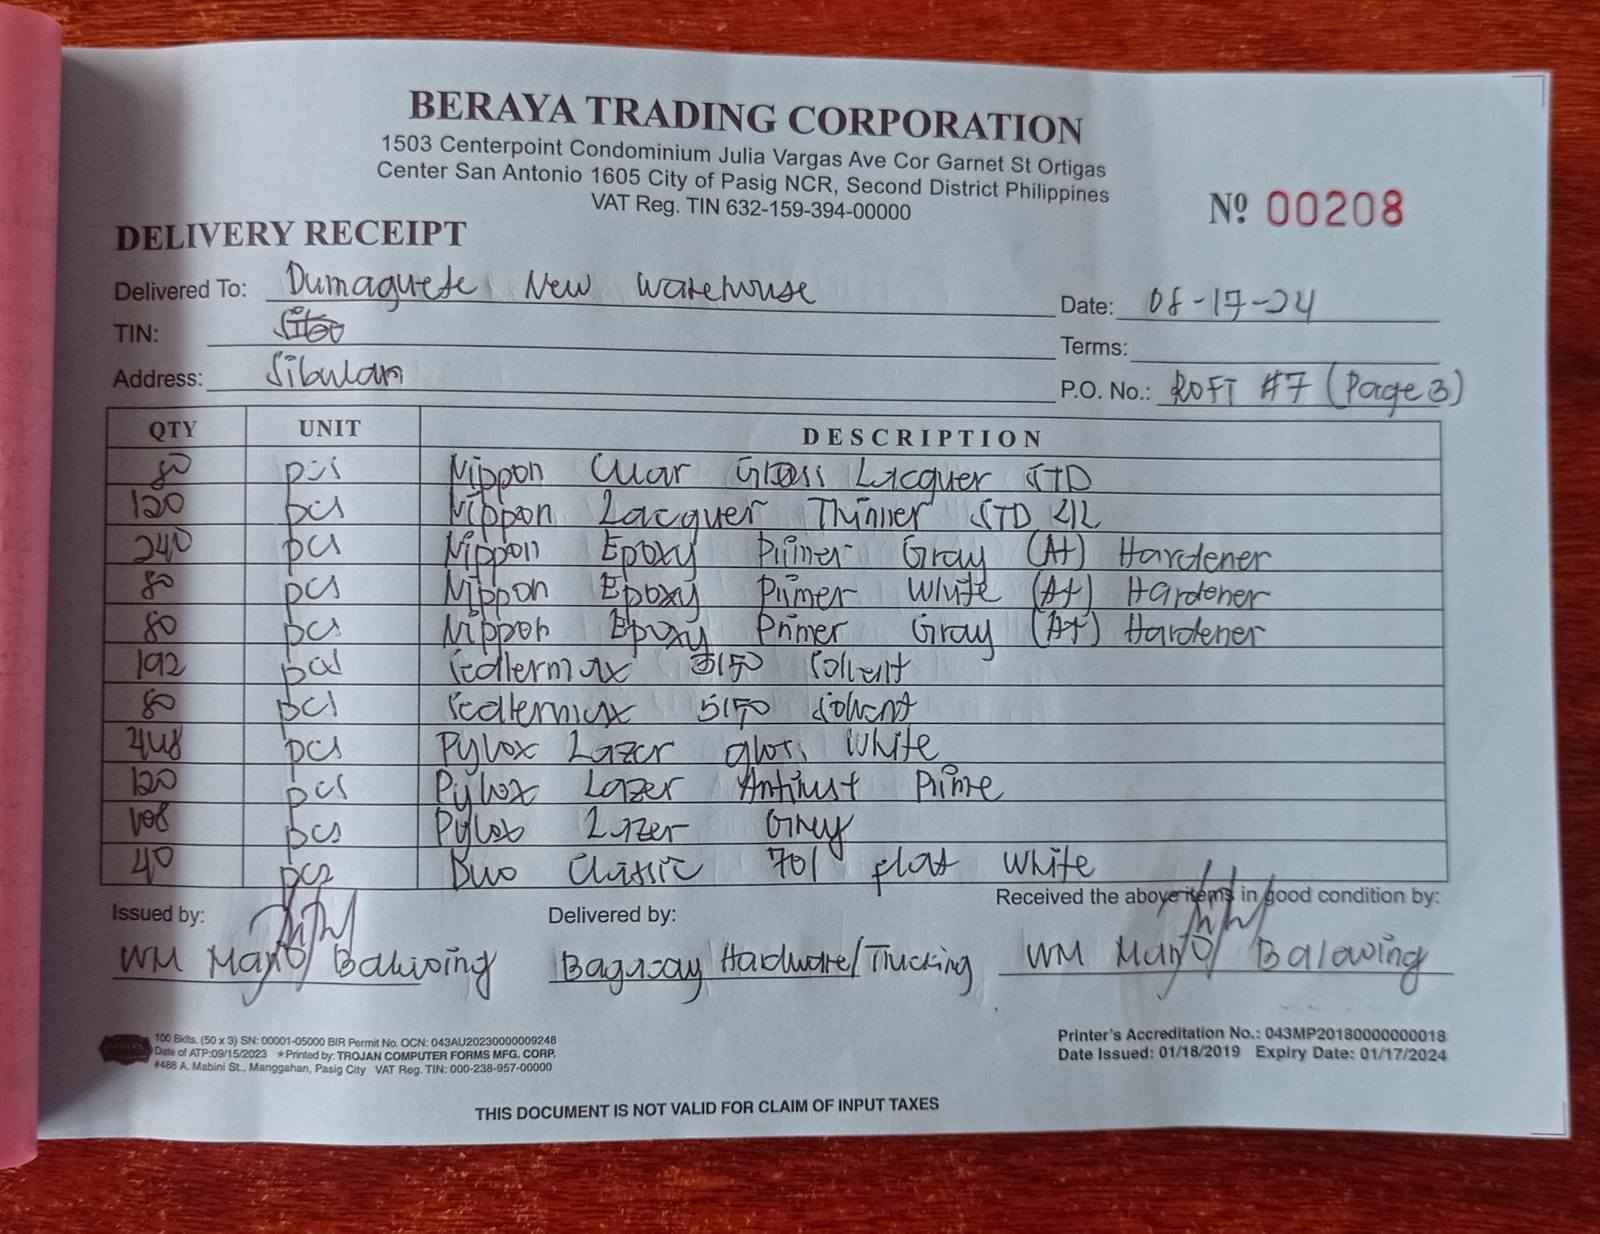 BERAYA TRADING CORPORATION
1503 Centerpoint Condominium Julia Vargas Ave Cor Garnet St Ortigas
Center San Antonio 1605 City of Pasig NCR, Second District Philippines
VAT Reg. TIN 632-159-394-00000
Nº 00208
DELIVERY RECEIPT
Delivered To: Dumaguete New Warehouse
Date: 08-17-24
TIN:
Terms:
Address: Sibulan
P.O. No.: ROFT #7 (Page 3)
QTY UNIT DESCRIPTION
80 pcs Nippon Clear Gloss Lacquer STD
120 pcs Nippon Lacquer Thinner STD 4L
240 pcs Nippon Epoxy Primer Gray (A+) Hardener
80 pcs Nippon Epoxy Primer White (A+) Hardener
80 pcs Nippon Epoxy Primer Gray (A+) Hardener
192 pcs Sealermax 5170 Solvent
80 pcs Sealermax 5170 Solvent
pcs Pylox Lazer gloss White
120 pcs Pylox Lazer Antirust Prime
108 pcs Pylox Lazer Grey
40 pcs Duo Classic 701 flat White
Issued by:
Delivered by:
Received the above items in good condition by:
WM Balawing
Bagacay Hardware/Trucking
WM Balawing
100 Bklts. (50 x 3) SN: 00001-05000 BIR Permit No. OCN: 043AU20230000009248
Date of ATP:09/15/2023 *Printed by: TROJAN COMPUTER FORMS MFG. CORP.
#488 A. Mabini St., Manggahan, Pasig City VAT Reg. TIN: 000-238-957-00000
Printer's Accreditation No.: 043MP20180000000018
Date Issued: 01/18/2019 Expiry Date: 01/17/2024
THIS DOCUMENT IS NOT VALID FOR CLAIM OF INPUT TAXES